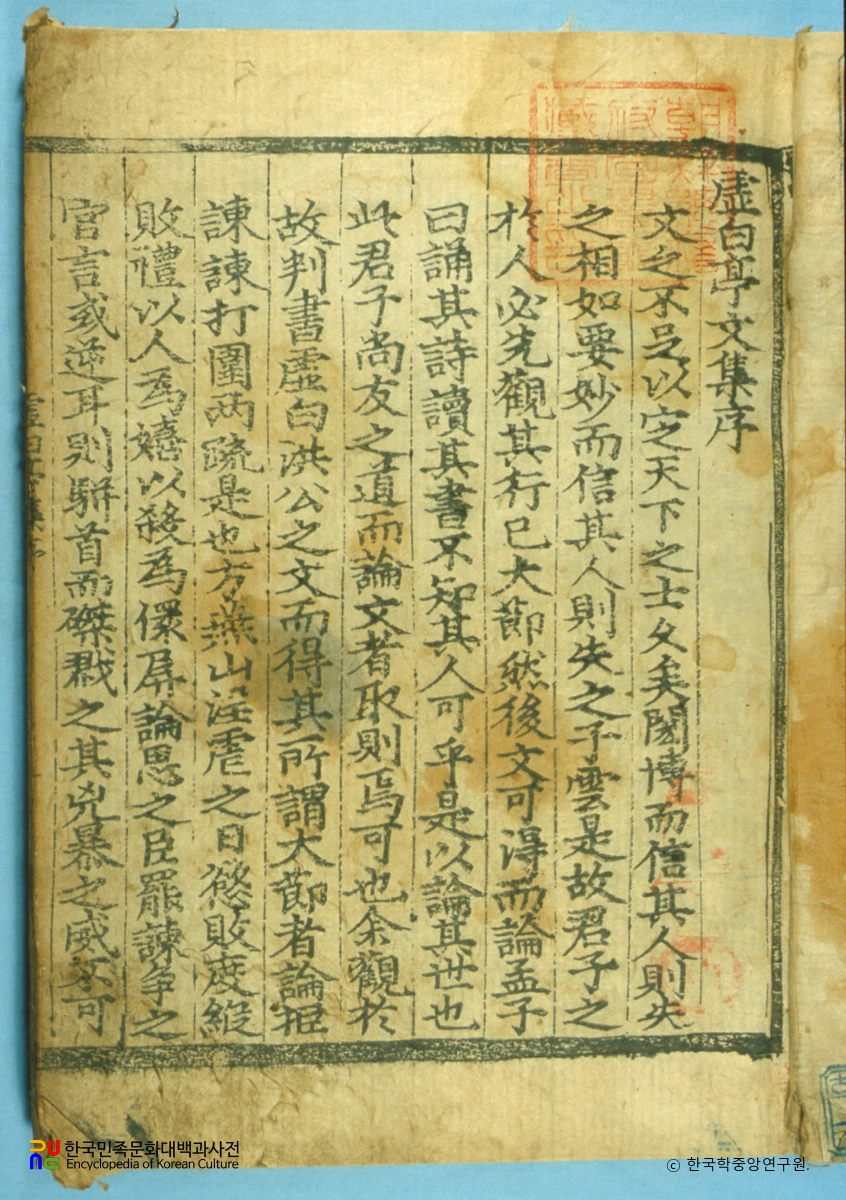 虛白亭文集序
文之不足以定天下之士久矣閎博而信其人則失
之相如要妙而信其人則失之子雲是故君子之
於人必先觀其行已大節然後文可得而論孟子
曰誦其詩讀其書不知其人可乎是以論其世也
此君子尚友之道而論文者取則焉可也余觀於
故判書虛白洪公之文而得其所謂大節者論拒
諫諫打圍兩疏是也方燕山淫虐之日慾敗度縱
敗禮以人爲嬉以殺爲儇屛論思之臣罷諫爭之
官言或逆耳則騈首而磔戮之其兇暴之威不可
虛白亭集序
한국민족문화대백과사전
Encyclopedia of Korean Culture
© 한국학중앙연구원.